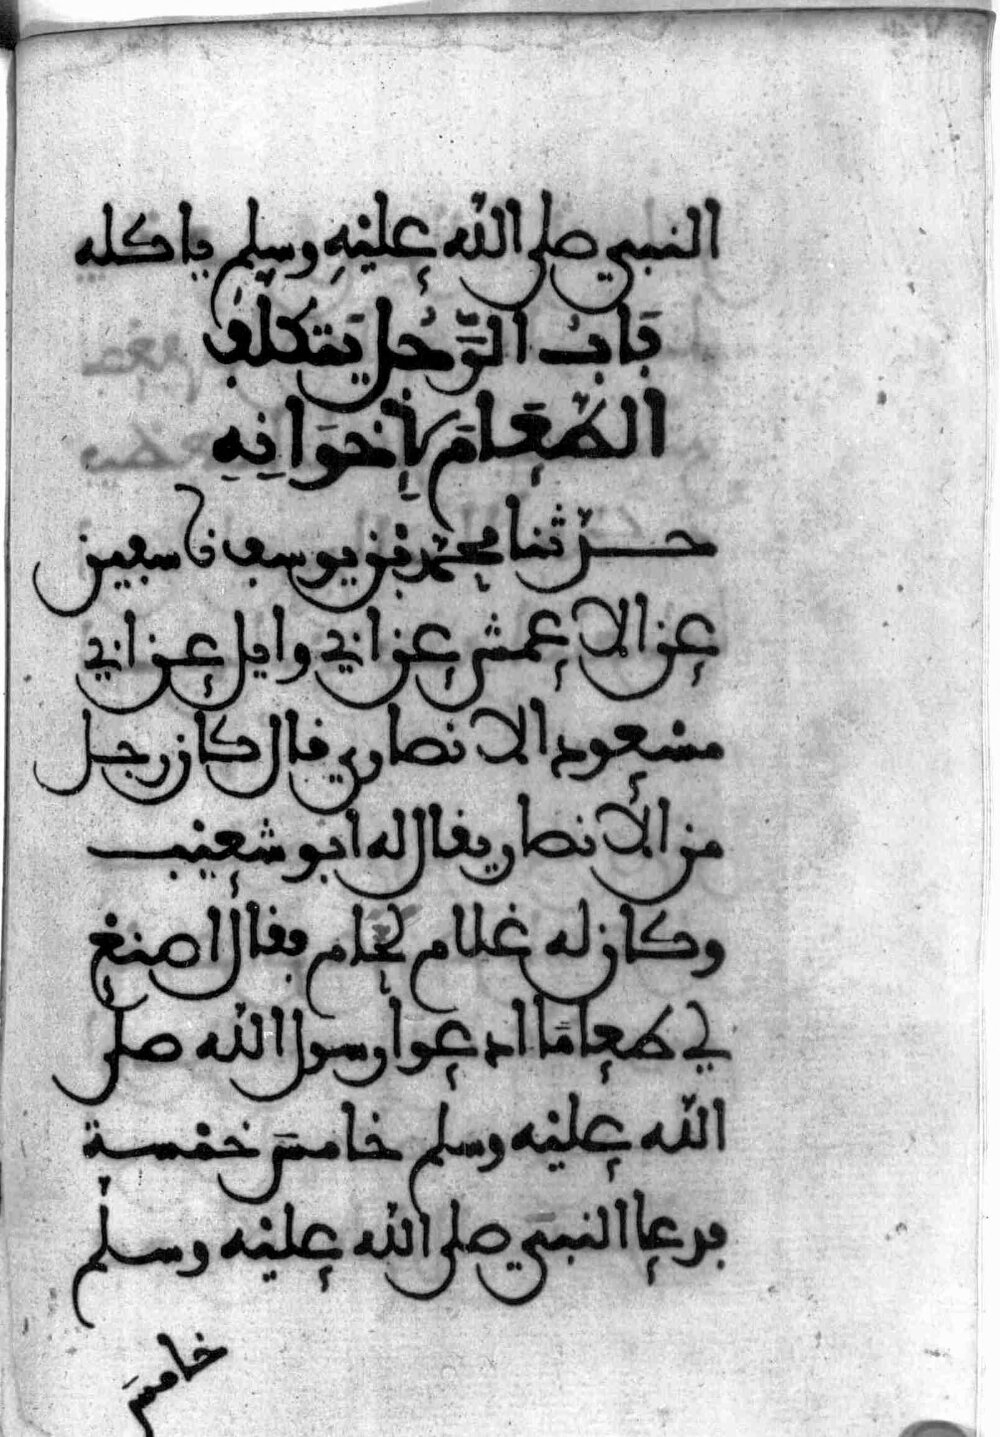 النبي صلى الله عليه وسلم ياكله
بَابُ الرَّجُل يَتَكلفُ
الطَّعَامَ لِإِخوَانِهِ
حدثنا محمد بن يوسف نا سفين
عن الاعمش عن ابي وايل عن ابي
مسعود الانصاري قال كان رجل
من الانصار يقال له ابو شعيب
وكان له غلام لحام فقال اصنع
لي طعامًا ادعوا رسول الله صلى
الله عليه وسلم خامسَ خمسة
فدعا النبي صلى الله عليه وسلم
خامسَ